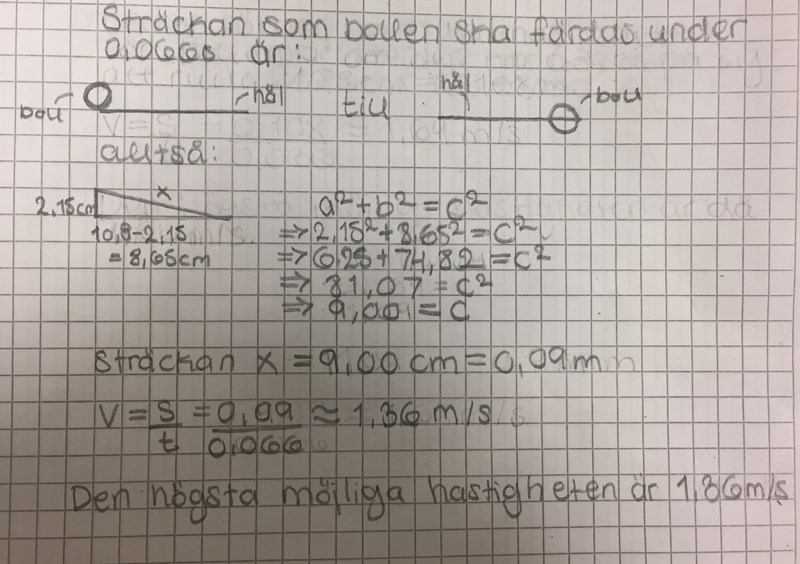 Sträckan som bollen ska färdas under
0,066s är:
boll hål till hål boll
alltså:
x
2,15cm a² + b² = c²
10,8-2,15 => 2,15² + 8,65² = c²
= 8,65cm => 6,25 + 74,82 = c²
=> 81,07 = c²
=> 9,00 = c
Sträckan x = 9,00 cm = 0,09m
V = s/t = 0,09/0,066 ≈ 1,36 m/s
Den högsta möjliga hastigheten är 1,36m/s